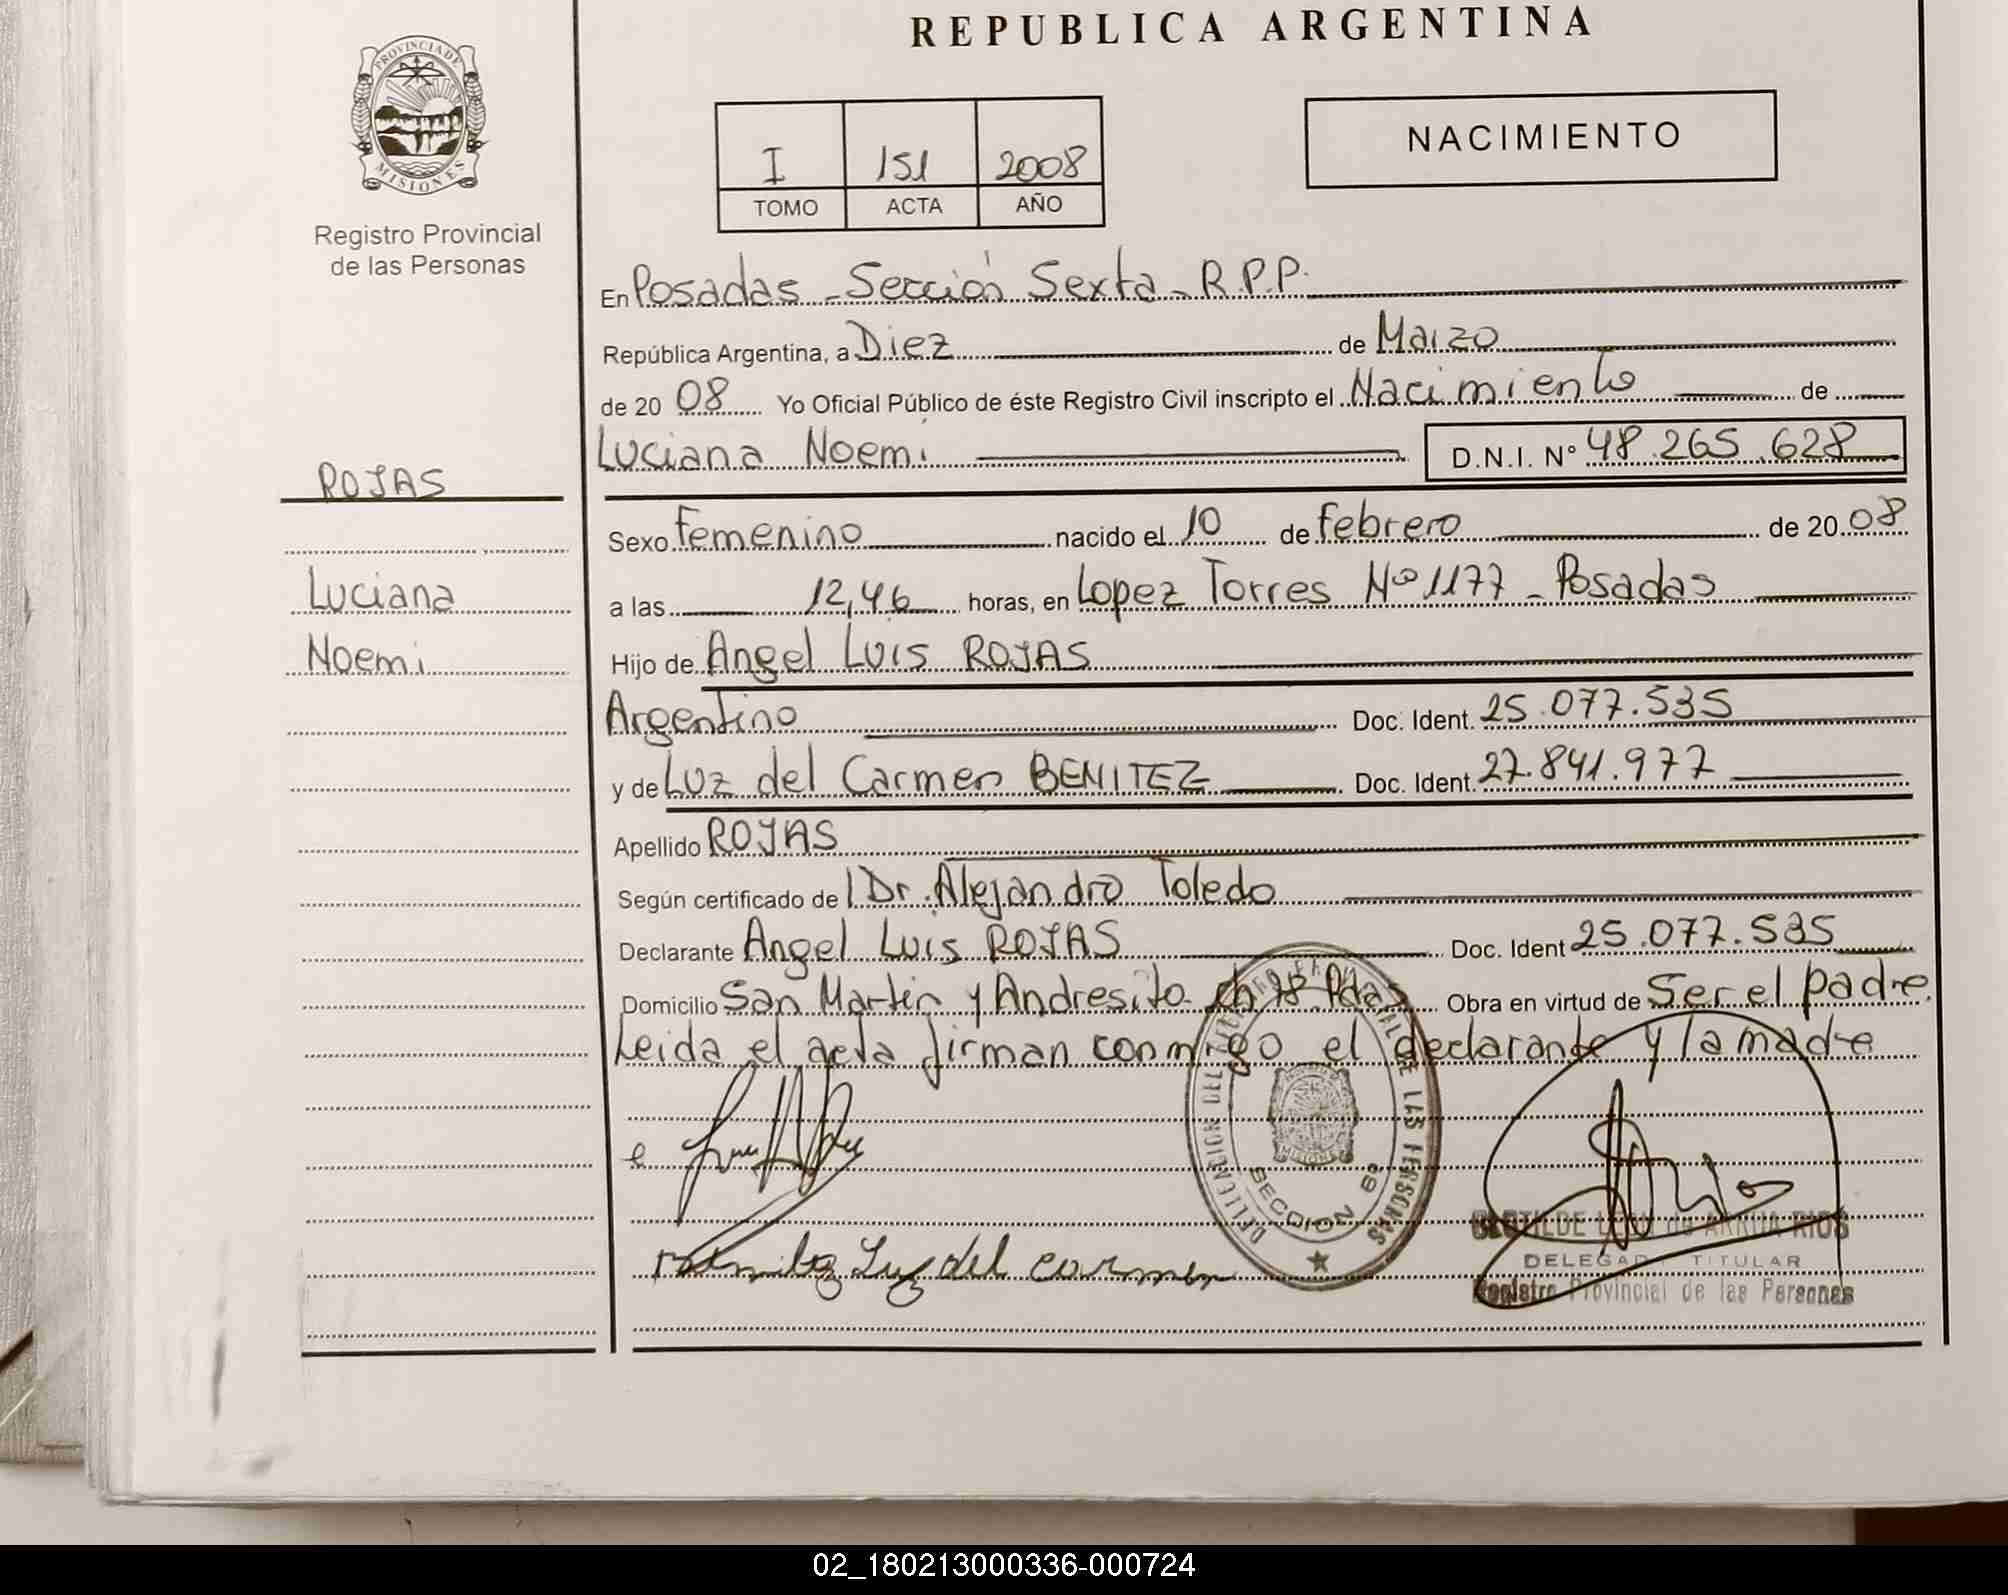 REPUBLICA ARGENTINA
PROVINCIA DE
MISIONES
Registro Provincial
de las Personas
I 151 2008
TOMO ACTA AÑO
NACIMIENTO
En Posadas - Sección Sexta - R.P.P.
República Argentina, a Diez de Marzo
de 20 08 Yo Oficial Público de éste Registro Civil inscripto el Nacimiento de
Luciana Noemi D.N.I. Nº 48.265.628
ROJAS
Luciana
Noemi
Sexo Femenino nacido el 10 de febrero de 20 08
a las 12,46 horas, en Lopez Torres Nº 1177 - Posadas
Hijo de Angel Luis ROJAS
Argentino Doc. Ident. 25.077.535
y de Luz del Carmen BENITEZ Doc. Ident. 27.841.977
Apellido ROJAS
Según certificado de l Dr. Alejandro Toledo
Declarante Angel Luis ROJAS Doc. Ident 25.077.535
Domicilio San Martin y Andresito Ch 78 Pdas Obra en virtud de Ser el padre
Leida el acta firman conmigo el declarante y la madre
Luz del Carmen
SECCION 6º
DE LAS PERSONAS
RIOS
TITULAR
Registro Provincial de las Personas
02_180213000336-000724